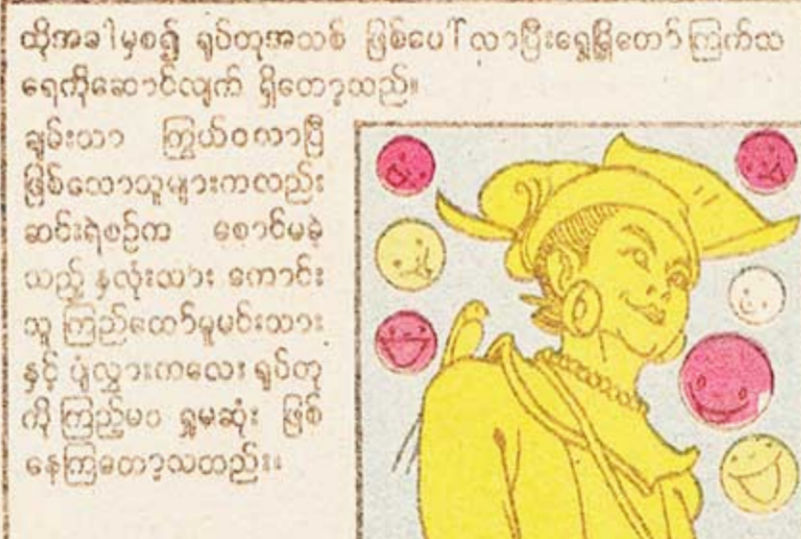 ထိုအခါမှစ၍ ရုပ်တုအသစ် ဖြစ်ပေါ်လာပြီးရွှေမြို့တော် ကြက်သ
ရေကိုဆောင်လျက် ရှိတော့သည်။
ချမ်းသာ ကြွယ်ဝလာပြီ
ဖြစ်သောသူများကလည်း
ဆင်းရဲစဉ်က စောင်မခဲ့
သည့် နှလုံးသား ကောင်း
သူ ကြည်တော်မူမင်းသား
နှင့် ပျံလွှားကလေး ရုပ်တု
ကို ကြည့်မဝ ရှုမဆုံး ဖြစ်
နေကြတော့သတည်း။